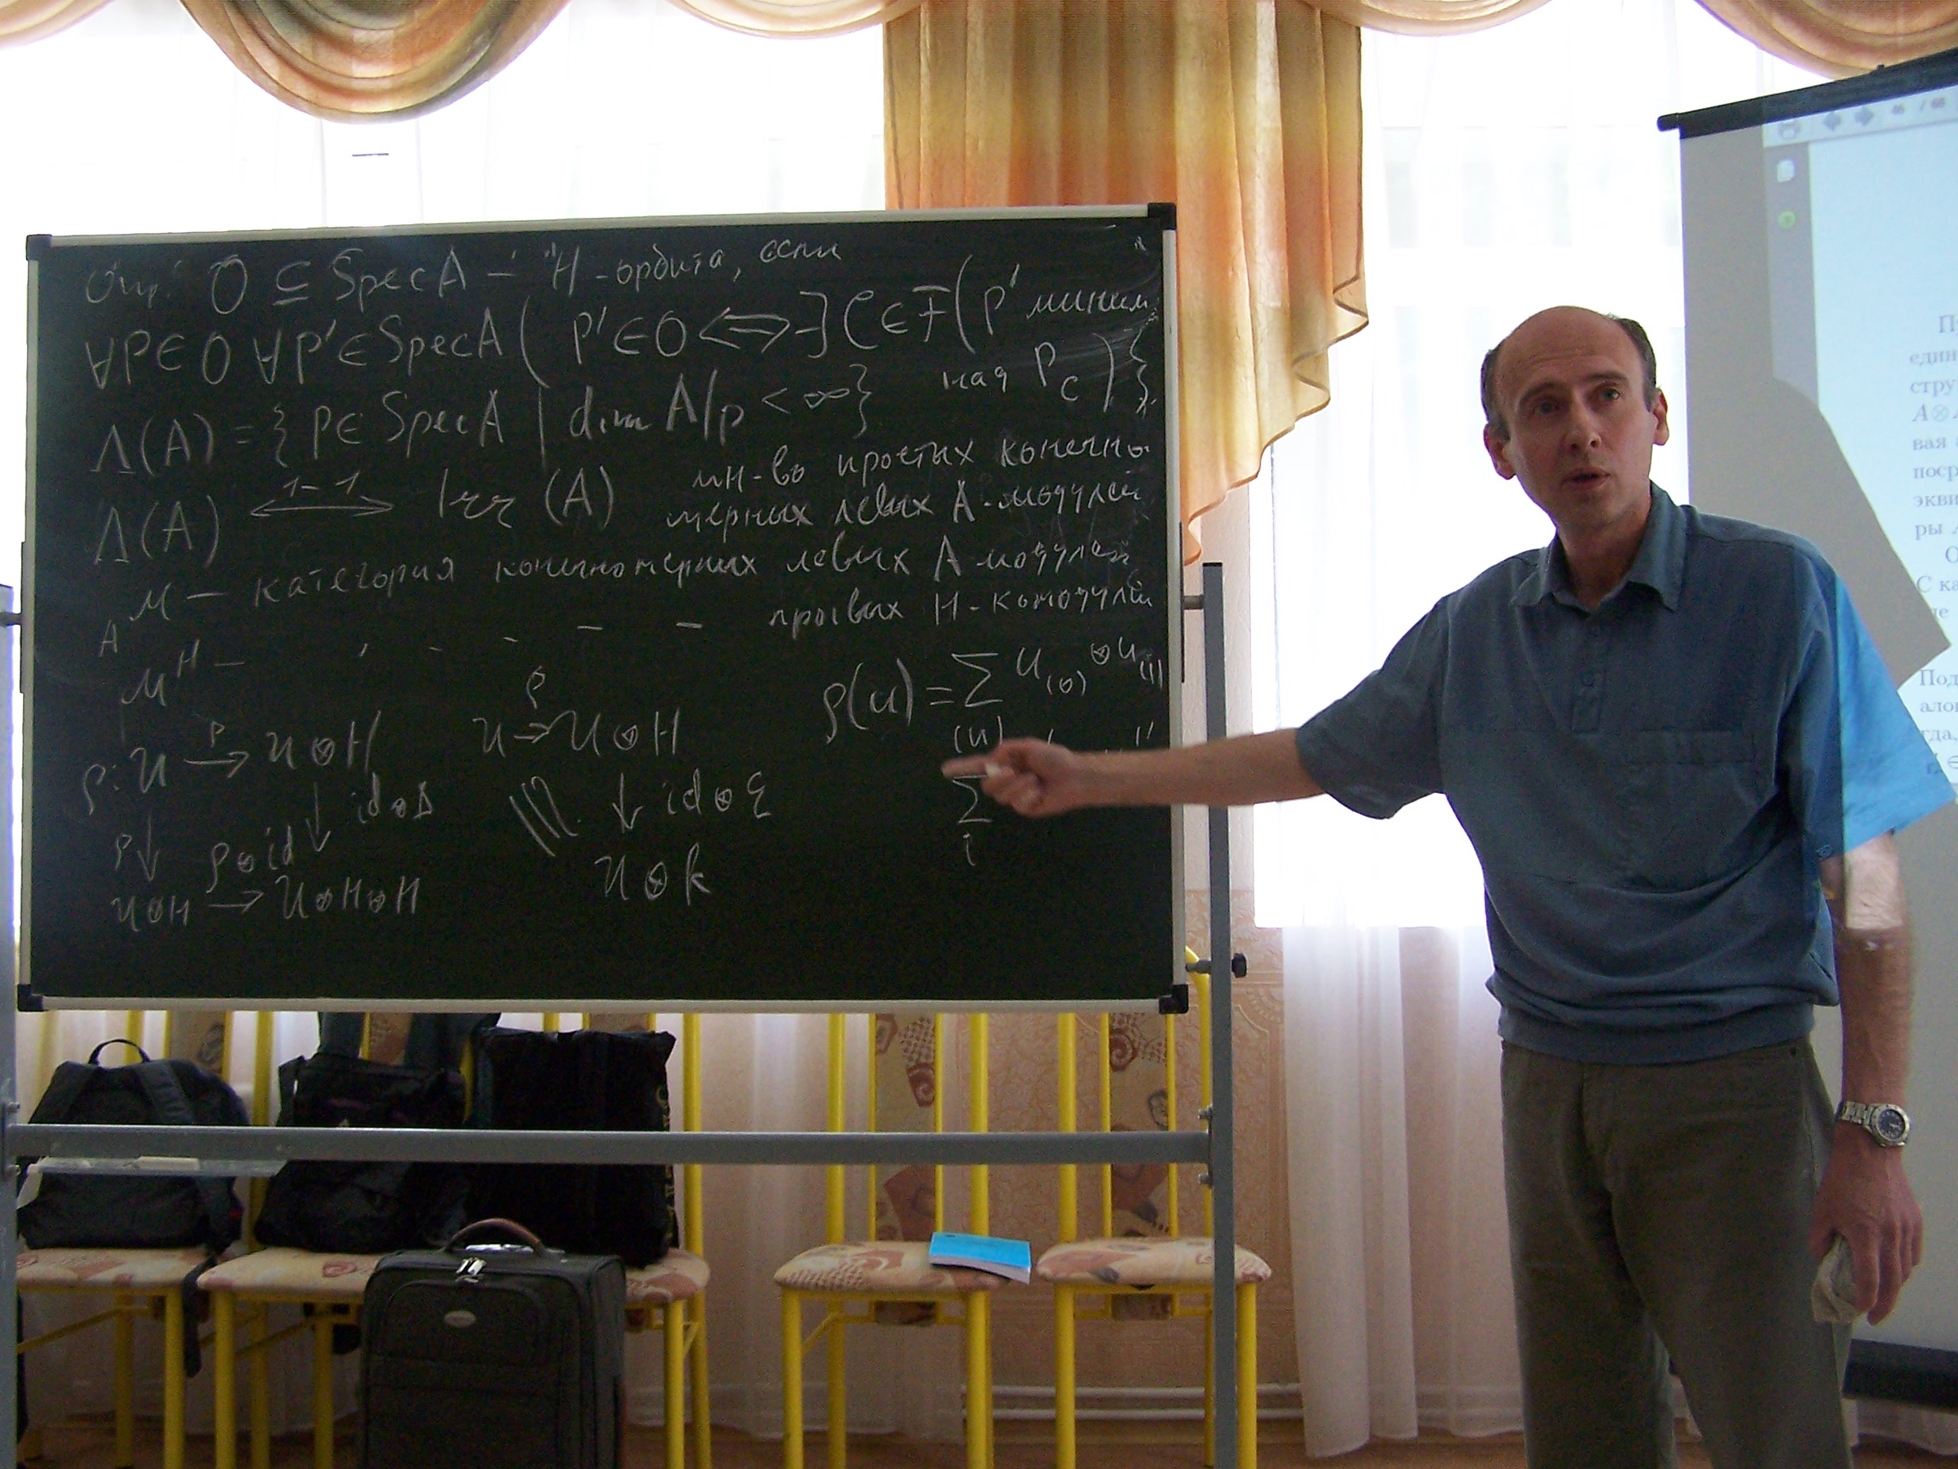 Опр. O ⊆ SpecA – H-орбита, если
∀P∈O ∀P'∈SpecA ( P'∈O ⟺ ∃ C∈F ( P' миним
над P_C ) }
Λ(A) = { P∈ SpecA | dim A/P < ∞ }
Λ(A) ⟷ Irr (A) мн-во простых конечно
1–1
мерных левых A-модулей
_A M – категория конечномерных левых A-модулей
M^H – , – – – правых H-комодулей
ρ: U →^ρ U⊗H
↓ id⊗Δ
ρ↓ ρ⊗id
U⊗H → U⊗H⊗H
U →^ρ U⊗H
↓ id⊗ε
U⊗k
ρ(u) = ∑ u_(0) ⊗ u_(1)
(u)
∑
i
46 / 66
един
стру
A⊗
вая
поср
экви
ры
С ка
Под
гда,